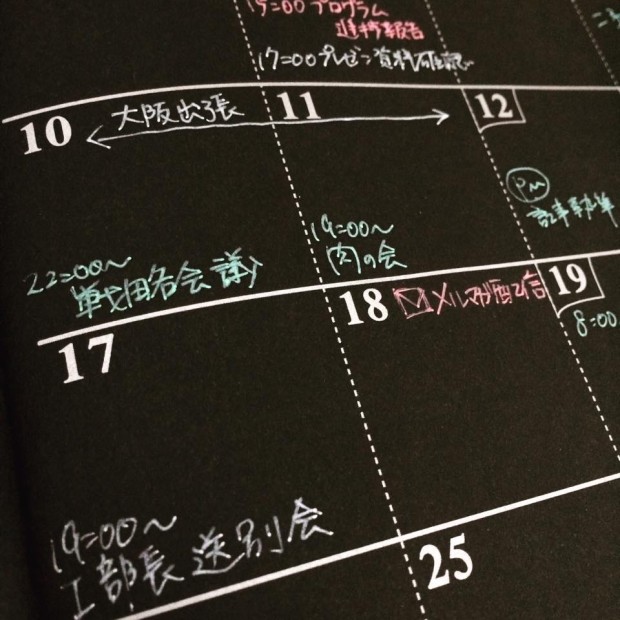 15:00 プログラム
進捗報告
17:00 プレゼン資料確認
10 大阪出張 11 12
PM
記事執筆
22:00〜
戦略会議
19:00〜
肉の会
17 18 メルマガ配信 19
8:00
19:00〜
I部長 送別会
25